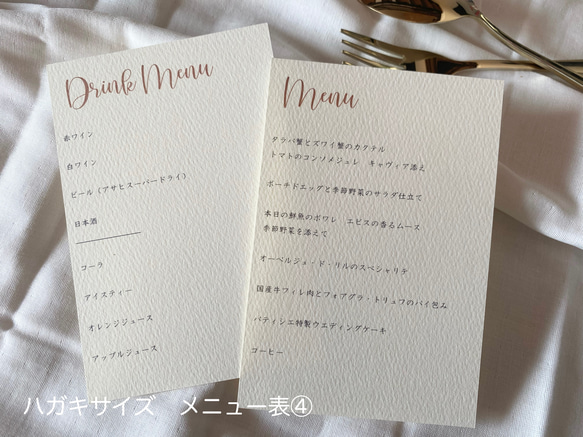 Drink Menu
赤ワイン
白ワイン
ビール（アサヒスーパードライ）
日本酒
コーラ
アイスティー
オレンジジュース
アップルジュース
Menu
タラバ蟹とズワイ蟹のカクテル
トマトのコンソメジュレ　キャヴィア添え
ポーチドエッグと季節野菜のサラダ仕立て
本日の鮮魚のポワレ　エビスの香るムース
季節野菜を添えて
オーベルジュ・ド・リルのスペシャリテ
国産牛フィレ肉とフォアグラ・トリュフのパイ包み
パティシエ特製ウエディングケーキ
コーヒー
ハガキサイズ　メニュー表④